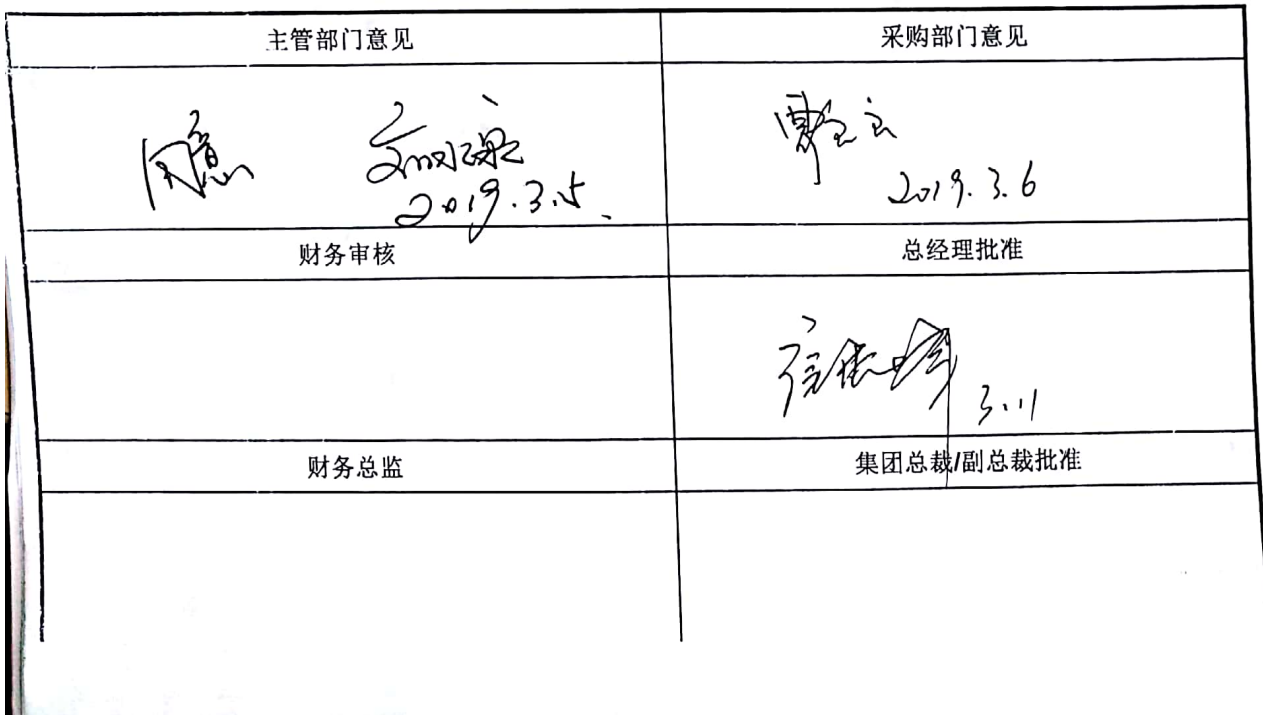 主管部门意见
采购部门意见
同意
2019.3.5.
2019.3.6
财务审核
总经理批准
3.11
财务总监
集团总裁/副总裁批准